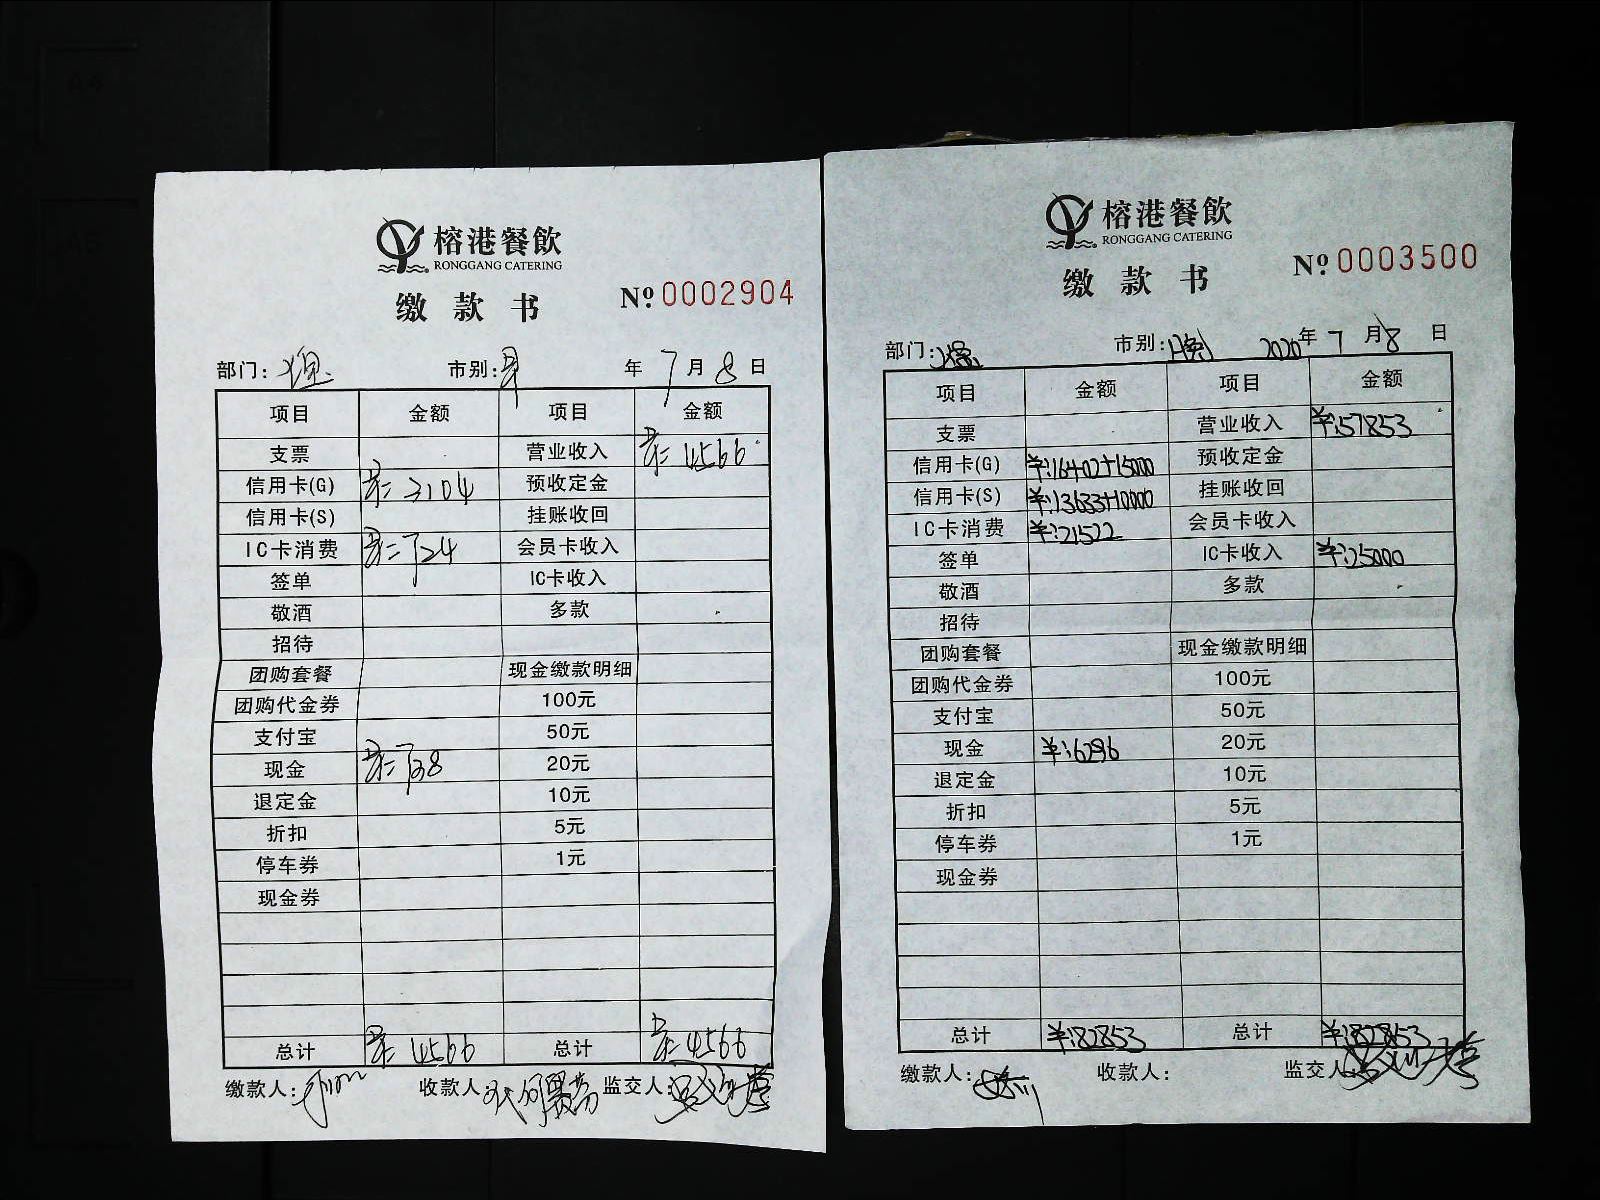 榕港餐飲
RONGGANG CATERING
缴款书 № 0002904
部门: 市别: 年 7 月 8 日
项目 金额 项目 金额
支票 营业收入 4566
信用卡(G) 3104 预收定金
信用卡(S) 挂账收回
IC卡消费 724 会员卡收入
签单 IC卡收入
敬酒 多款
招待
团购套餐 现金缴款明细
团购代金券 100元
支付宝 50元
现金 738 20元
退定金 10元
折扣 5元
停车券 1元
现金券
总计 4566 总计 4566
缴款人: 收款人: 监交人:
榕港餐飲
RONGGANG CATERING
缴款书 № 0003500
部门: 市别: 2020 年 7 月 8 日
项目 金额 项目 金额
支票 营业收入 ¥:57853
信用卡(G) ¥:16402+15000 预收定金
信用卡(S) ¥:13633+10000 挂账收回
IC卡消费 ¥:21522 会员卡收入
签单 IC卡收入 ¥:25000
敬酒 多款
招待
团购套餐 现金缴款明细
团购代金券 100元
支付宝 50元
现金 ¥:6296 20元
退定金 10元
折扣 5元
停车券 1元
现金券
总计 ¥:82853 总计 ¥:82853
缴款人: 收款人: 监交人